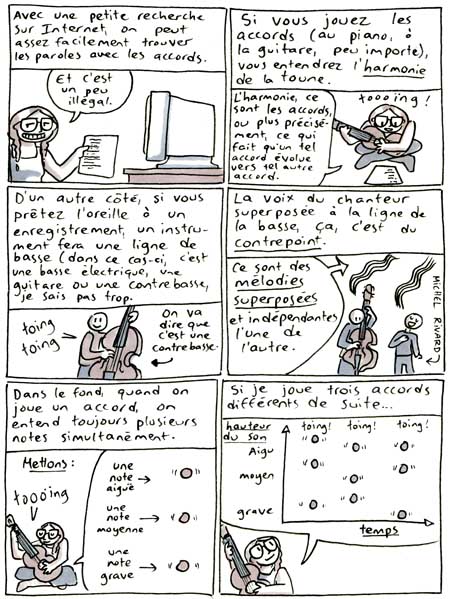 Avec une petite recherche
sur Internet, on peut
assez facilement trouver
les paroles avec les accords.
Et c'est
un peu
illégal.
Si vous jouez les
accords (au piano, à
la guitare, peu importe),
vous entendrez l'harmonie
de la toune.
L'harmonie, ce
sont les accords,
ou plus précisé-
ment, ce qui
fait qu'un tel
accord évolue
vers tel autre
accord.
toooïng!
D'un autre côté, si vous
prêtez l'oreille à un
enregistrement, un instru-
ment fera une ligne de
basse (dans ce cas-ci, c'est
une basse électrique, une
guitare ou une contrebasse,
je sais pas trop.
toïng
toïng
On va
dire que
c'est une
contrebasse.
La voix du chanteur
superposée à la ligne de
la basse, ça, c'est du
contrepoint.
Ce sont des
mélodies
superposées
et indépendantes
l'une de
l'autre.
MICHEL RIVARD
Dans le fond, quand on
joue un accord, on
entend toujours plusieurs
notes simultanément.
Mettons:
toooïng
une
note
aiguë
une
note
moyenne
une
note
grave
Si je joue trois accords
différents de suite...
hauteur
du son
toïng! toïng! toïng!
Aigu
moyen
grave
temps